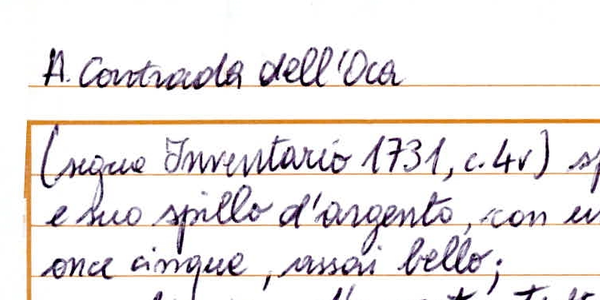 A. Contrada dell'Oca
(segue Inventario 1731, c. 4v)
e suo spillo d'argento, con
once cinque, assai bello;